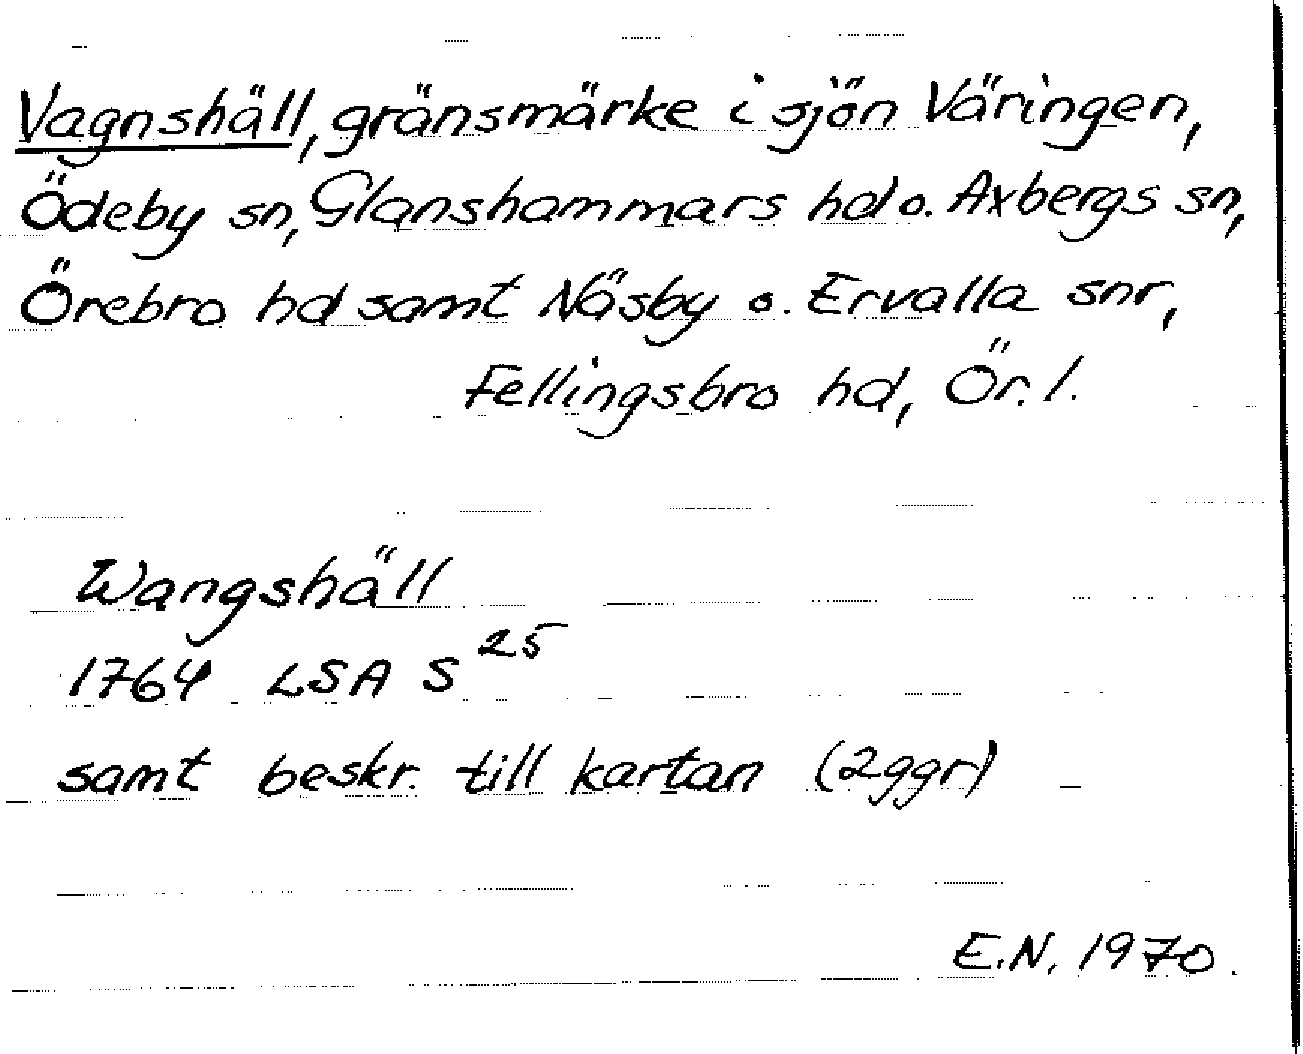 Vagnshäll, gränsmärke i sjön Väringen,
Ödeby sn, Glanshammars hd o. Axbergs sn,
Örebro hd samt Näsby o. Ervalla snr,
Fellingsbro hd, Ör. l.
Wangshäll
1764 LSA S 25
samt beskr. till kartan (2ggr)
E.N. 1970.